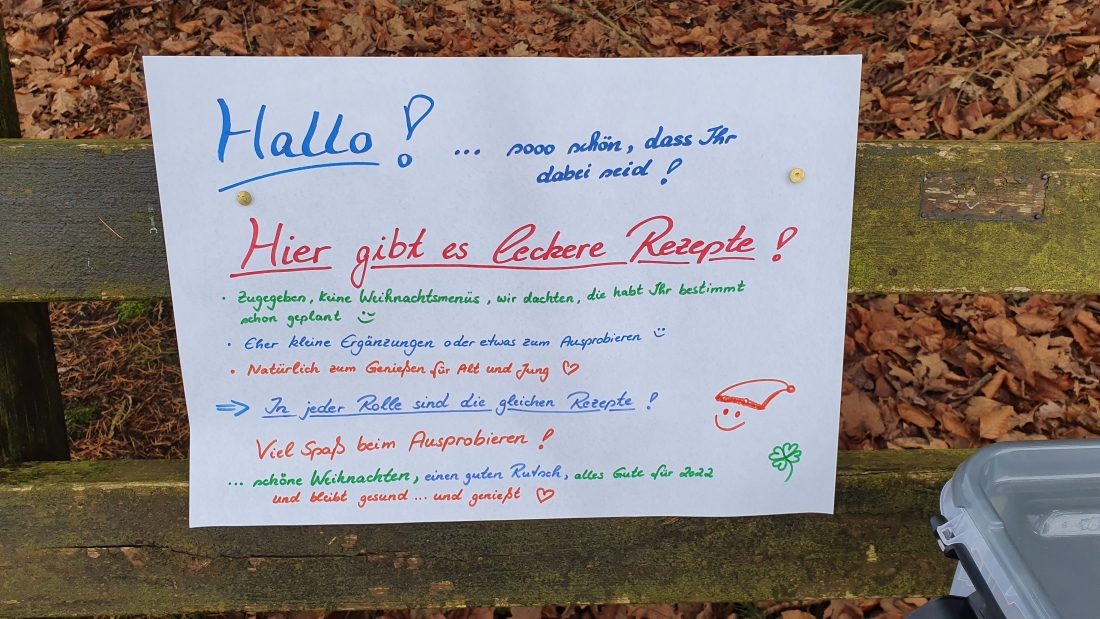 Hallo! ... sooo schön, dass Ihr
dabei seid!
Hier gibt es leckere Rezepte!
· Zugegeben, keine Weihnachtsmenüs, wir dachten, die habt Ihr bestimmt
schon geplant
· Eher kleine Ergänzungen oder etwas zum Ausprobieren
· Natürlich zum Genießen für Alt und Jung
⇒ In jeder Rolle sind die gleichen Rezepte!
Viel Spaß beim Ausprobieren!
... schöne Weihnachten, einen guten Rutsch, alles Gute für 2022
und bleibt gesund ... und genießt